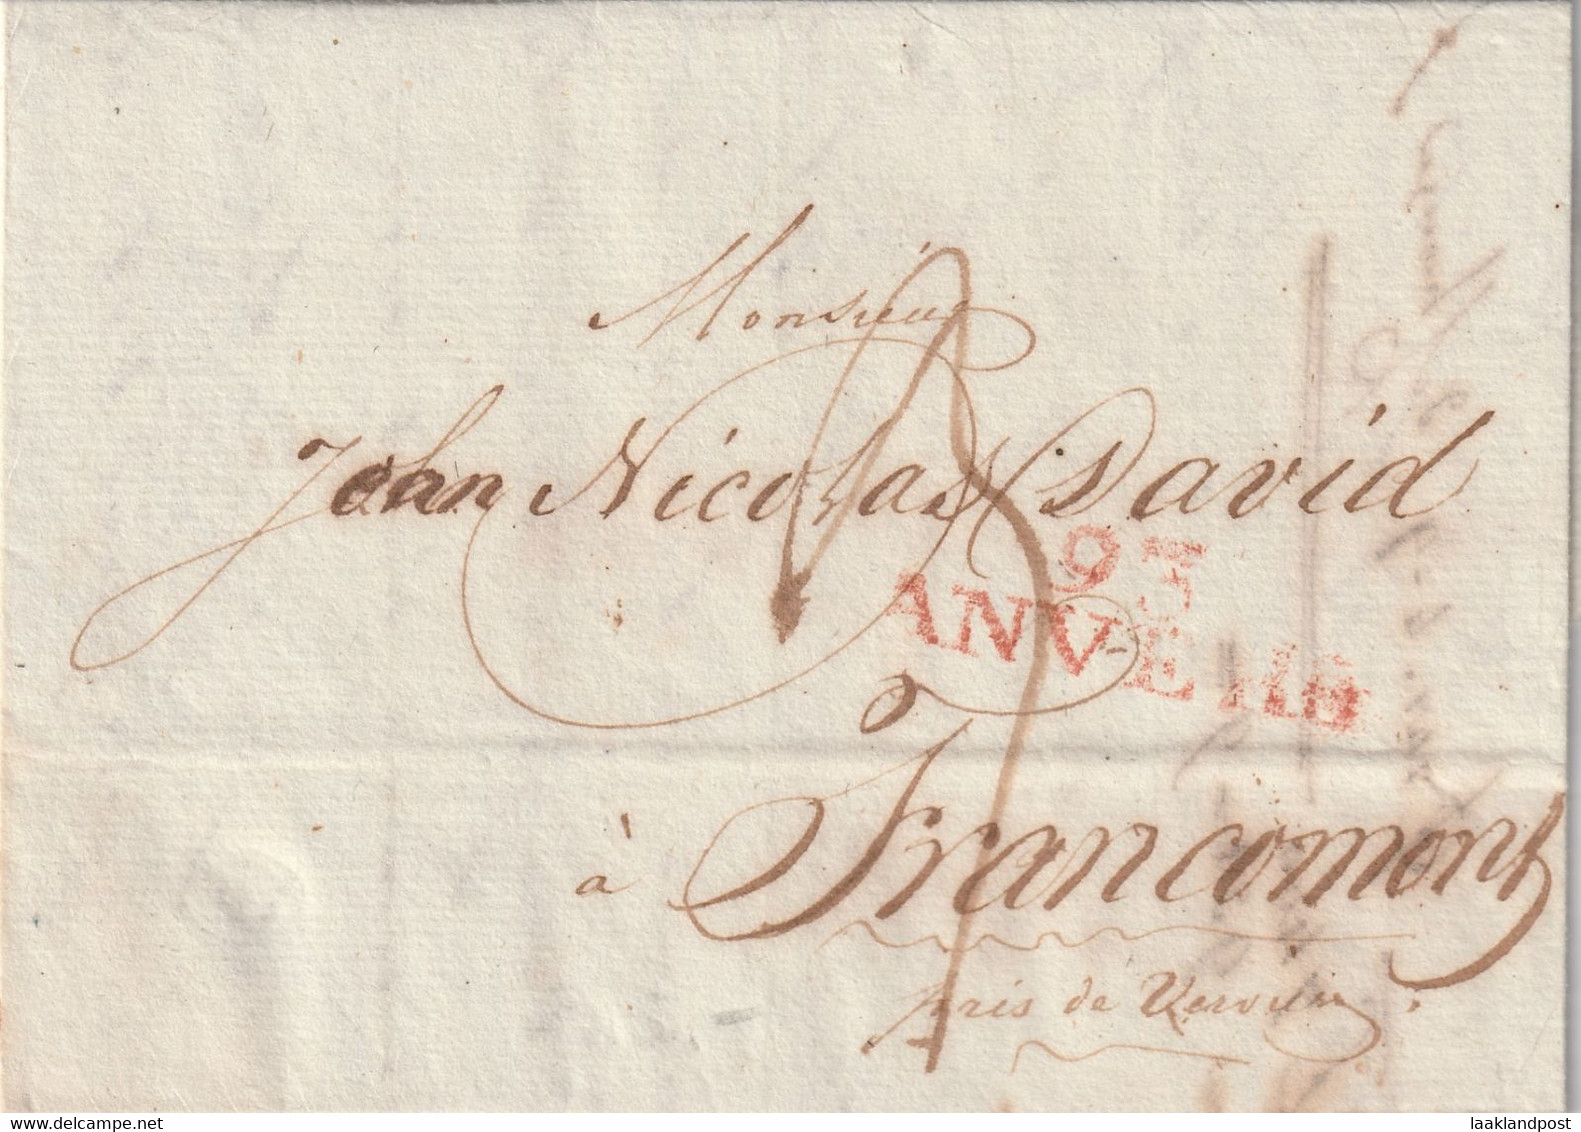 Monsieur
John Nicolas David
93
ANVERS
à Francomont
près de Vervier
www.delcampe.net
laaklandpost